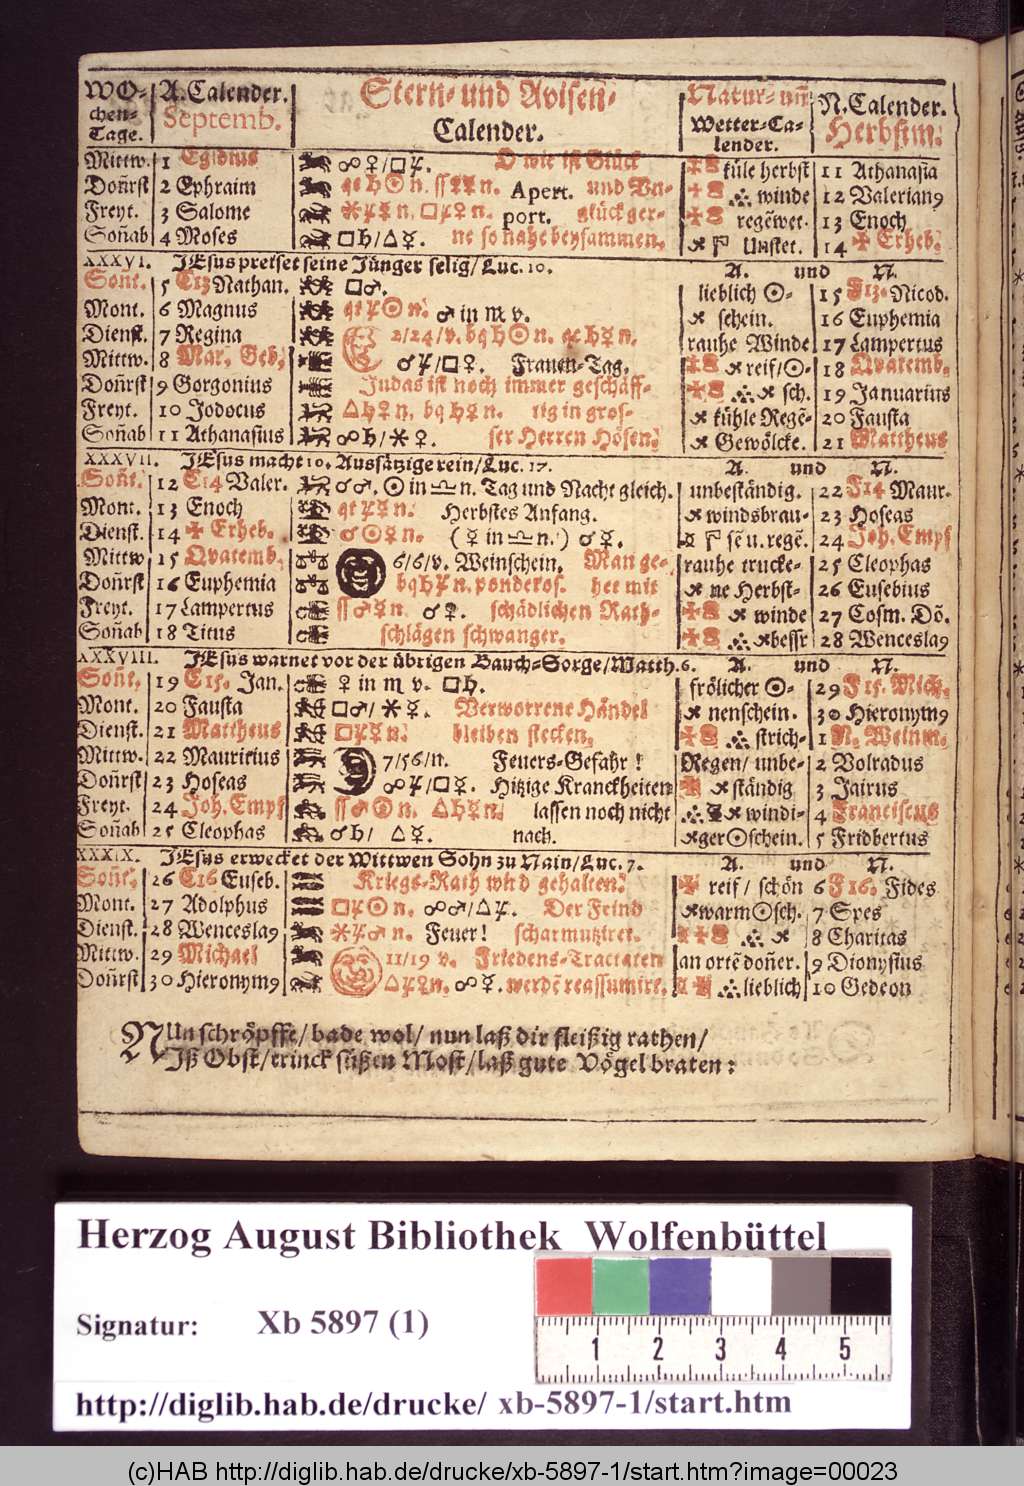 WO- A. Calender. Stern- und Avisen- Natur- uñ N. Calender.
chen- Septemb. Calender. Wetter-Ca- Herbstm.
Tage. lender.
Mittw. 1 Egidius ☍ ♀ / □ ♃. O wie ist Glück küle herbst 11 Athanasia
Doñrst 2 Ephraim Apert. und Un- winde 12 Valerian9
Freyt. 3 Salome port. glück ger- regẽwet. 13 Enoch
Soñab 4 Moses □ ♄ / △ ☿. ne so nahe beysammen. Unstet. 14 ✠ Erheb.
XXXVI. JEsus preiset seine Jünger selig/ Luc. 10. A. und N.
Sont. 5 C13 Nathan. □ ♂. lieblich ☉- 15 F13. Nicod.
Mont. 6 Magnus ♂ in ♏ v. schein. 16 Euphemia
Dienst. 7 Regina 2/24/v. bq ♄ ☉ n. rauhe Winde 17 Lampertus
Mittw. 8 Mar. Geb. ☌ ♃ / □ ♀. Frauen-Tag. reif/ ☉- 18 Qvatemb.
Doñrst 9 Gorgonius Judas ist noch immer geschäff- sch. 19 Januarius
Freyt. 10 Jodocus △ ♄ ♀ n. tig in gros- kühle Regẽ- 20 Fausta
Soñab 11 Athanasius ☍ ♄ / ✶ ♀. ser Herren Höfen. Gewölcke. 21 Mattheus
XXXVII. JEsus macht 10. Aussätzige rein/ Luc. 17. A. und N.
Soñt. 12 C14 Valer. ☌ ♂. ☉ in ♎ n. Tag und Nacht gleich. unbeständig. 22 F14 Maur.
Mont. 13 Enoch Herbstes Anfang. windsbrau- 23 Hoseas
Dienst. 14 ✠ Erheb. ☌ ☉ ☿ n. ( ☿ in ♎ n. ) ☌ ☿. sẽ u. regẽ. 24 Joh. Empf
Mittw 15 Qvatemb. 6/6/v. Weinschein. Man ge- rauhe trucke- 25 Cleophas
Doñrst 16 Euphemia ponderos. het mit ne Herbst- 26 Eusebius
Freyt. 17 Lampertus schädlichen Rath- winde 27 Cosm. Dõ.
Soñab 18 Titus schlägen schwanger. bessr 28 Wencesla9
XXXVIII. JEsus warnet vor der übrigen Bauch-Sorge/ Matth. 6. A. und N.
Soñt. 19 C15. Jan. ♀ in ♏ v. □ ♄. frölicher ☉- 29 F15. Mich.
Mont. 20 Fausta □ ♂ / ✶ ☿. Verworrene Händel nenschein. 30 Hieronym9
Dienst. 21 Mattheus bleiben stecken. strich- 1 N. Weinm.
Mittw. 22 Mauritius 7/56/n. Feuers-Gefahr! Regen/ unbe- 2 Volradus
Doñrst 23 Hoseas ☍ ♃ / □ ☿. Hitzige Kranckheiten ständig 3 Jairus
Freyt. 24 Joh. Empf lassen noch nicht windi- 4 Franciscus
Soñab 25 Cleophas ♂ ♄ / △ ☿. nach. ger ☉ schein. 5 Fridbertus
XXXIX. JEsus erwecket der Wittwen Sohn zu Nain/ Luc. 7. A. und N.
Soñt. 26 C16 Euseb. Kriegs-Rath wird gehalten. reif/ schön 6 F16. Fides
Mont. 27 Adolphus □ ♃ ☉ n. ☍ ♂ / △ ♃. Der Feind warm ☉ sch. 7 Spes
Dienst. 28 Wencesla9 ✶ ♃ ♂ n. Feuer! scharmutziret. 8 Charitas
Mittw. 29 Michael 11/19 v. Friedens-Tractaten an ortẽ doñer. 9 Dionysius
Doñrst 30 Hieronym9 △ ♃ ♀ n. ☍ ☿. werdẽ reassumirt. lieblich 10 Gedeon
NUn schröpffe/ bade wol/ nun laß dir fleißig rathen/
Iß Obst/ trinck süßen Most/ laß gute Vögel braten:
Herzog August Bibliothek Wolfenbüttel
Signatur: Xb 5897 (1)
1 2 3 4 5
http://diglib.hab.de/drucke/ xb-5897-1/start.htm
(c)HAB http://diglib.hab.de/drucke/xb-5897-1/start.htm?image=00023